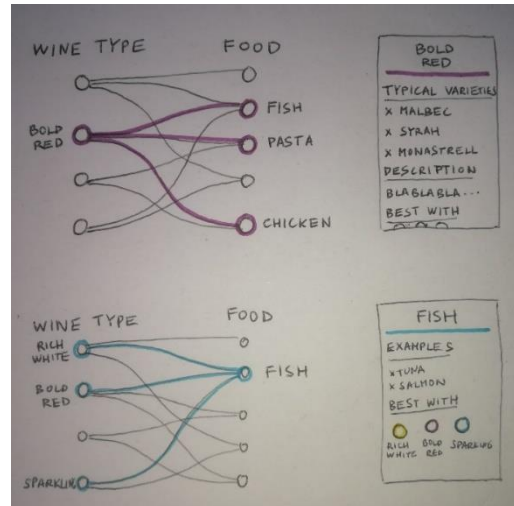 WINE TYPE
FOOD
BOLD
RED
FISH
PASTA
CHICKEN
BOLD
RED
TYPICAL VARIETIES
x MALBEC
x SYRAH
x MONASTRELL
DESCRIPTION
BLABLABLA...
BEST WITH
WINE TYPE
FOOD
RICH
WHITE
BOLD
RED
SPARKLING
FISH
FISH
EXAMPLES
x TUNA
x SALMON
BEST WITH
RICH
WHITE
BOLD
RED
SPARKLING